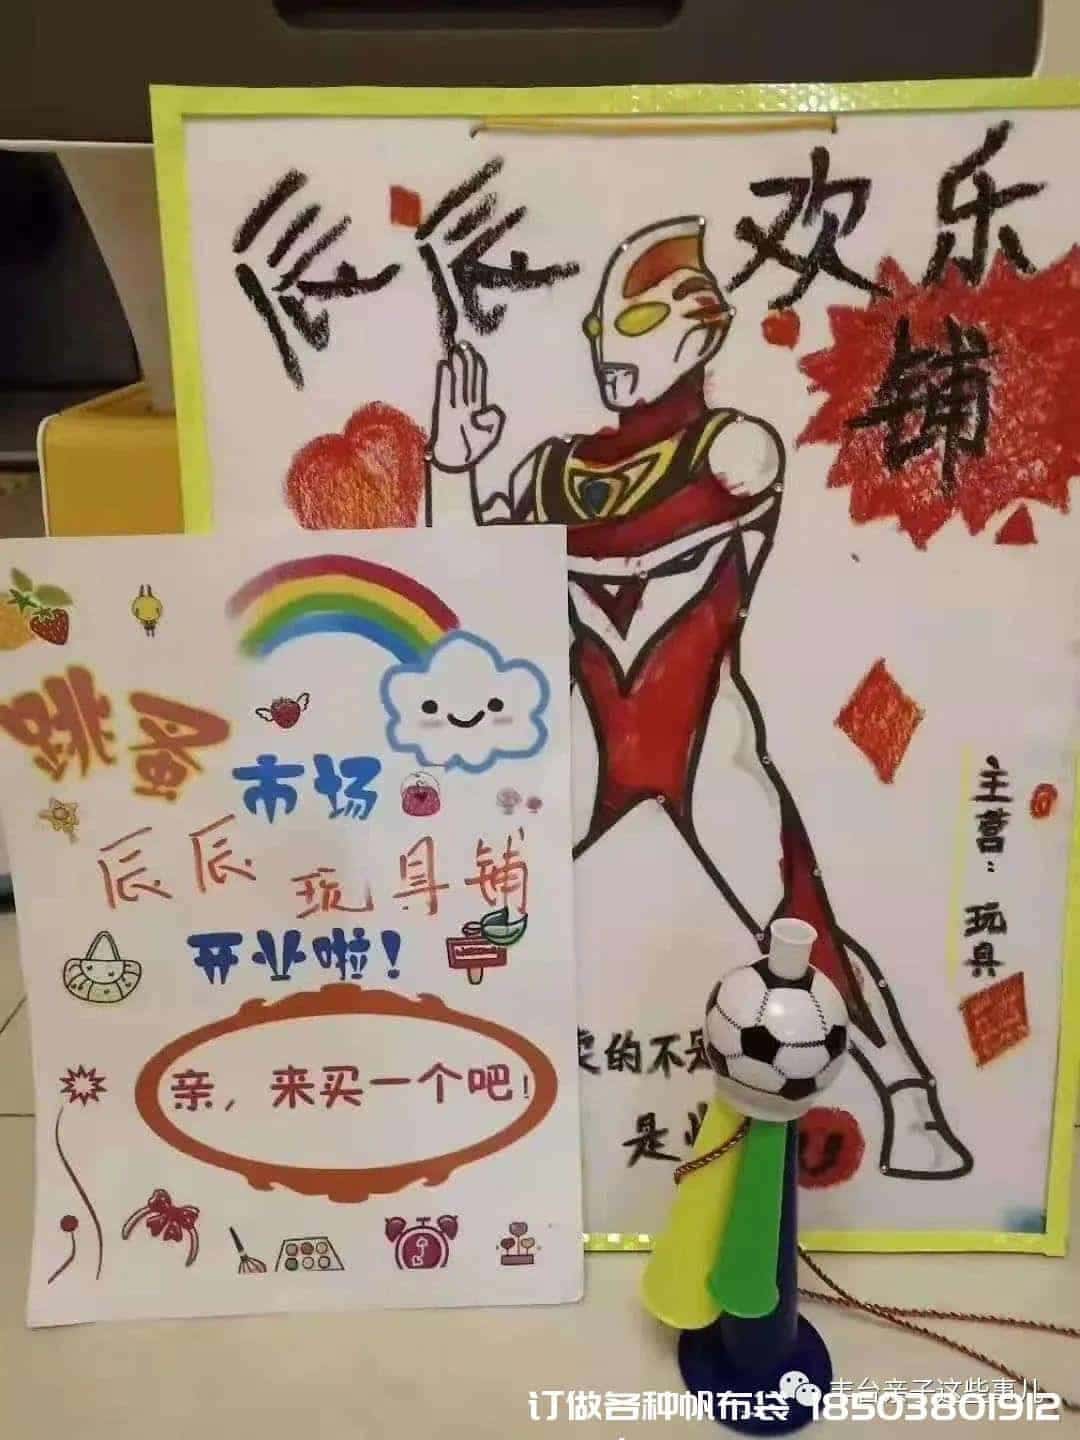 辰辰欢乐
铺
主营：玩具
卖的不是
是
U
跳蚤
市场
辰辰玩具铺
开业啦！
亲，来买一个吧！
丰台亲子这些事儿
订做各种帆布袋 18503801912